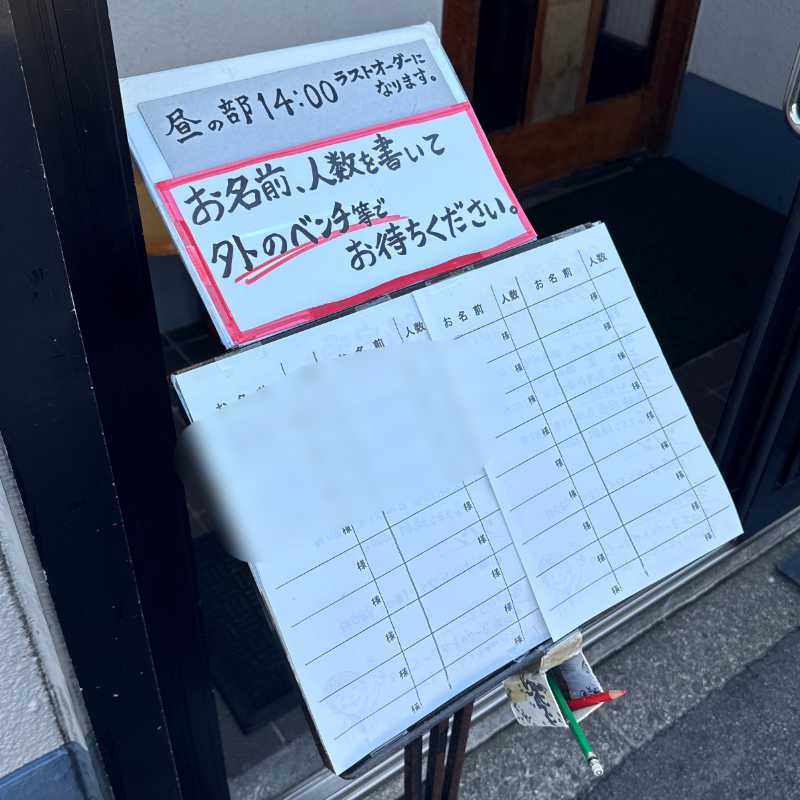 昼の部 14:00 ラストオーダーに
なります。
お名前、人数を書いて
外のベンチ等で
お待ちください。
お名前 人数 お名前 人数
お名前 人数
様 様
様 様
様 様
様 様
様 様
様 様
様 様
様 様
様 様
様 様
様 様
様 様
様